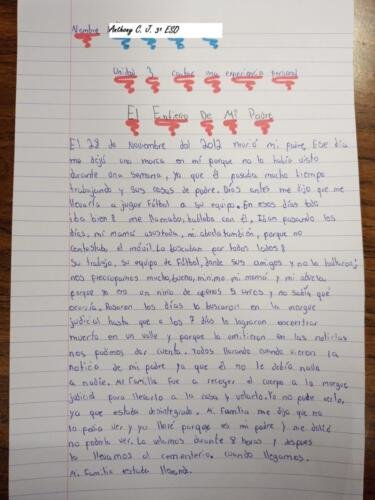 Nombre Anthony C. J. 3º ESO
Unidad 3 contar una experiencia personal
El Entierro De Mi Padre
El 28 de Noviembre del 2012 murió mi padre, Ese día
me dejó una marca en mí porque no lo había visto
durante una semana, ya que él pasaba mucho tiempo
trabajando y sus cosas de padre. Dias antes me dijo que me
llevaría a jugar fútbol a su equipo. En esos días todo
iba bien me llamaba, hablaba con él. Iban pasando los
días, mi mamá asustada, mi abuela también, porque no
contestaba el móvil. Lo buscaban por todos lados
Su trabajo, su equipo de Fútbol, donde sus amigos y no lo hallaron;
nos preocupamos mucho, bueno, minimo mi mamá y mi abuela
porque yo era un niño de apenas 5 años y no sabía qué
ocurría. Pasaron los días lo buscaron en la morgue
judicial hasta que a los 7 días lo lograron encontrar
muerto en un valle y porque lo emitieron en las noticias
nos pudimos dar cuenta. Todos llorando cuando vieron la
noticia de mi padre ya que él no le debía nada
a nadie. Mi Familia fue a recoger el cuerpo a la morgue
judicial para llevarlo a la casa y velarlo. Yo no pude verlo,
ya que estaba desintegrado. Mi Familia me dijo que no
lo podía ver y yo lloré porque es mi padre y me dolió
no poderlo ver. Lo velamos durante 8 horas y después
lo llevamos al cementerio. Cuando llegamos.
Mi Familia estaba llorando.